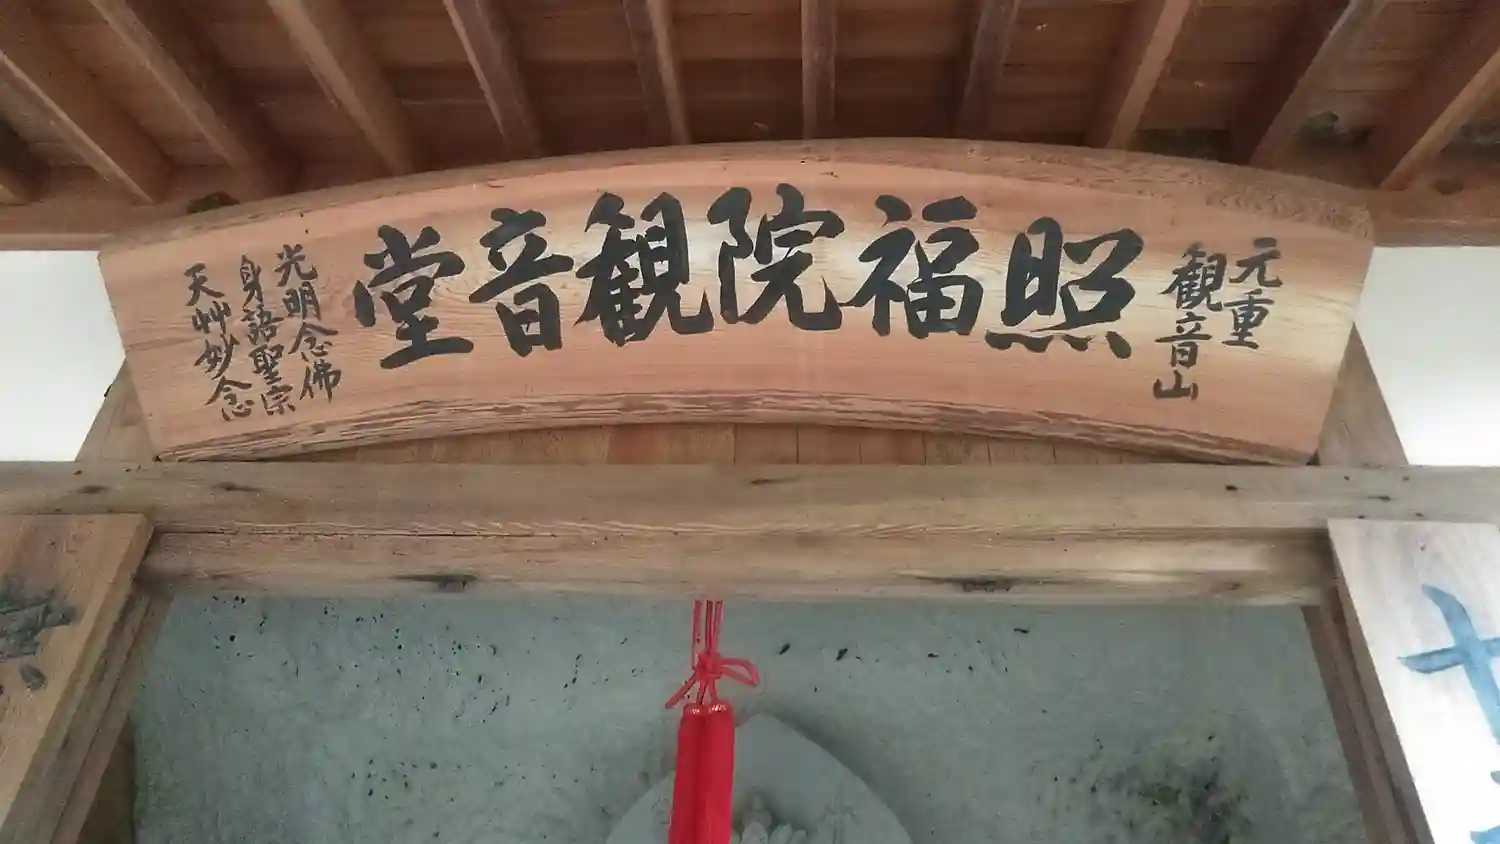 元重
観音山
照福院観音堂
光明念佛
身語聖宗
天艸妙念